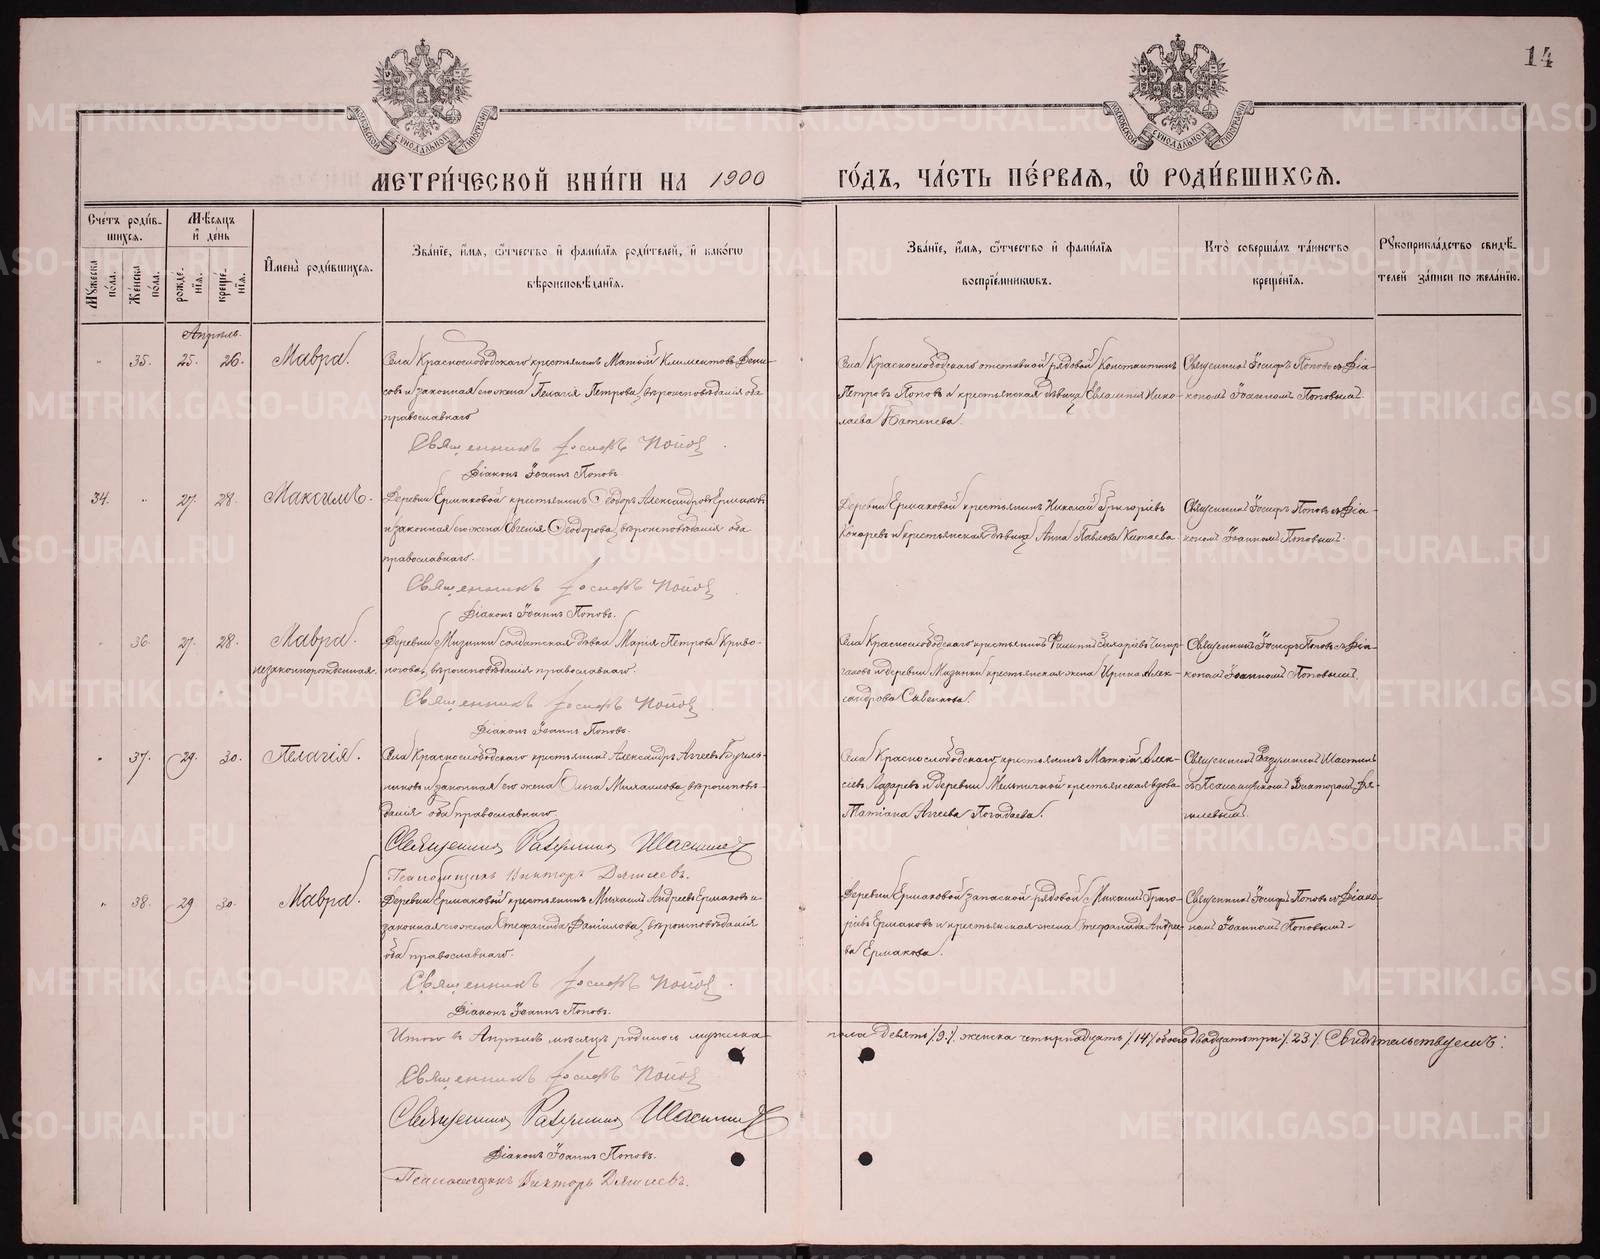 14
МОСКОВСКОЙ СѴНОДАЛЬНОЙ ТИПОГРАФІИ
МОСКОВСКОЙ СѴНОДАЛЬНОЙ ТИПОГРАФІИ
МЕТРИ́ЧЕСКОЙ КНИ́ГИ НА 1900 ГО́ДЪ, ЧА́СТЬ ПЕ́РВАЯ, Ѿ РОДИ́ВШИХСѦ.
Сче́тъ роди́в-
шихсѧ.
Мꙋжеска по́ла.
Же́нска по́ла.
Мѣ́сѧцъ и҆ де́нь
рожде́нїѧ.
креще́нїѧ.
И҆мена̀ роди́вшихсѧ.
Зва́нїе, и҆́мѧ, ѻ҆́тчество и҆ фами́лїѧ роди́телей, и҆ како́гѡ
вѣроисповѣ́данїѧ.
Зва́нїе, и҆́мѧ, ѻ҆́тчество и҆ фами́лїѧ
воспрїе́мникѡвъ.
Кто̀ соверша́лъ та́инство
креще́нїѧ.
Рꙋкоприкла́дство свидѣ́-
телей за́писи по жела́нїю.
Апрѣль.
" 35. 25. 26. Мавра.
Села Краснослободскаго крестьянинъ Матѳій Климентовъ Дени-
совъ и законная его жена Пелагія Петрова, вѣроисповѣданія оба
православнаго
Священникъ Іосифъ Попов
Діаконъ Іоаннъ Поповъ.
Села Краснослободскаго отставной рядовой Константинъ
Петровъ Поповъ и крестьянская дѣвица Евлампія Нико-
лаева Батенева.
Священникъ Іосифъ Поповъ съ Діа-
кономъ Іоанномъ Поповымъ.
34. " 27. 28. Максимъ.
Деревни Ермаковой крестьянинъ Ѳеодоръ Александровъ Ермаковъ
и законная его жена Евгенія Ѳеодорова, вѣроисповѣданія оба
православнаго.
Священникъ Іосифъ Попов
Діаконъ Іоаннъ Поповъ.
Деревни Ермаковой крестьянинъ Николай Григорьевъ
Кокаревъ и крестьянская дѣвица Анна Павлова Китаева
Священникъ Іосифъ Поповъ съ Діа-
кономъ Іоанномъ Поповымъ.
" 36. 27. 28. Мавра.
незаконнорожденная.
Деревни Мизинки солдатская дѣвка Марія Петрова Криво-
ногова, вѣроисповѣданія православнаго.
Священникъ Іосифъ Попов
Діаконъ Іоаннъ Поповъ.
Села Краснослободскаго крестьянинъ Филиппъ Захаріевъ Чигир-
галовъ и деревни Мизинки крестьянская жена Ирина Алек-
сандрова Савенкова.
Священникъ Іосифъ Поповъ съ Діа-
кономъ Іоанномъ Поповымъ.
" 37. 29. 30. Пелагія.
Села Краснослободскаго крестьянинъ Александръ Аггеевъ Бучель-
никовъ и законная его жена Ольга Михаилова, вѣроисповѣ-
данія оба православнаго.
Священникъ
Псаломщикъ Викторъ
Села Краснослободскаго крестьянинъ Матѳій Алек-
сіевъ Лазаревъ и деревни Мельничной крестьянская вдова
Татіана Аггеева Погадаева.
Священникъ
съ Псаломщикомъ Викторомъ
" 38. 29 30. Мавра.
Деревни Ермаковой крестьянинъ Михаилъ Андреевъ Ермаковъ и
законная его жена Стефанида Даніилова, вѣроисповѣданія
оба православнаго.
Священникъ Іосифъ Попов
Діаконъ Іоаннъ Поповъ.
Деревни Ермаковой запасной рядовой Михаилъ Григо-
ріевъ Ермаковъ и крестьянская жена Стефанида Андрее-
ва Ермакова.
Священникъ Іосифъ Поповъ съ Діако-
номъ Іоанномъ Поповымъ.
Итого въ Апрѣлѣ мѣсяцѣ родилось мужска пола девять /9/. женска четырнадцать /14/ обоего двадцать три /23/. Свидѣтельствуемъ:
Священникъ Іосифъ Попов
Священникъ
Діаконъ Іоаннъ Поповъ.
Псаломщикъ Викторъ
METRIKI.GASO-URAL.RU